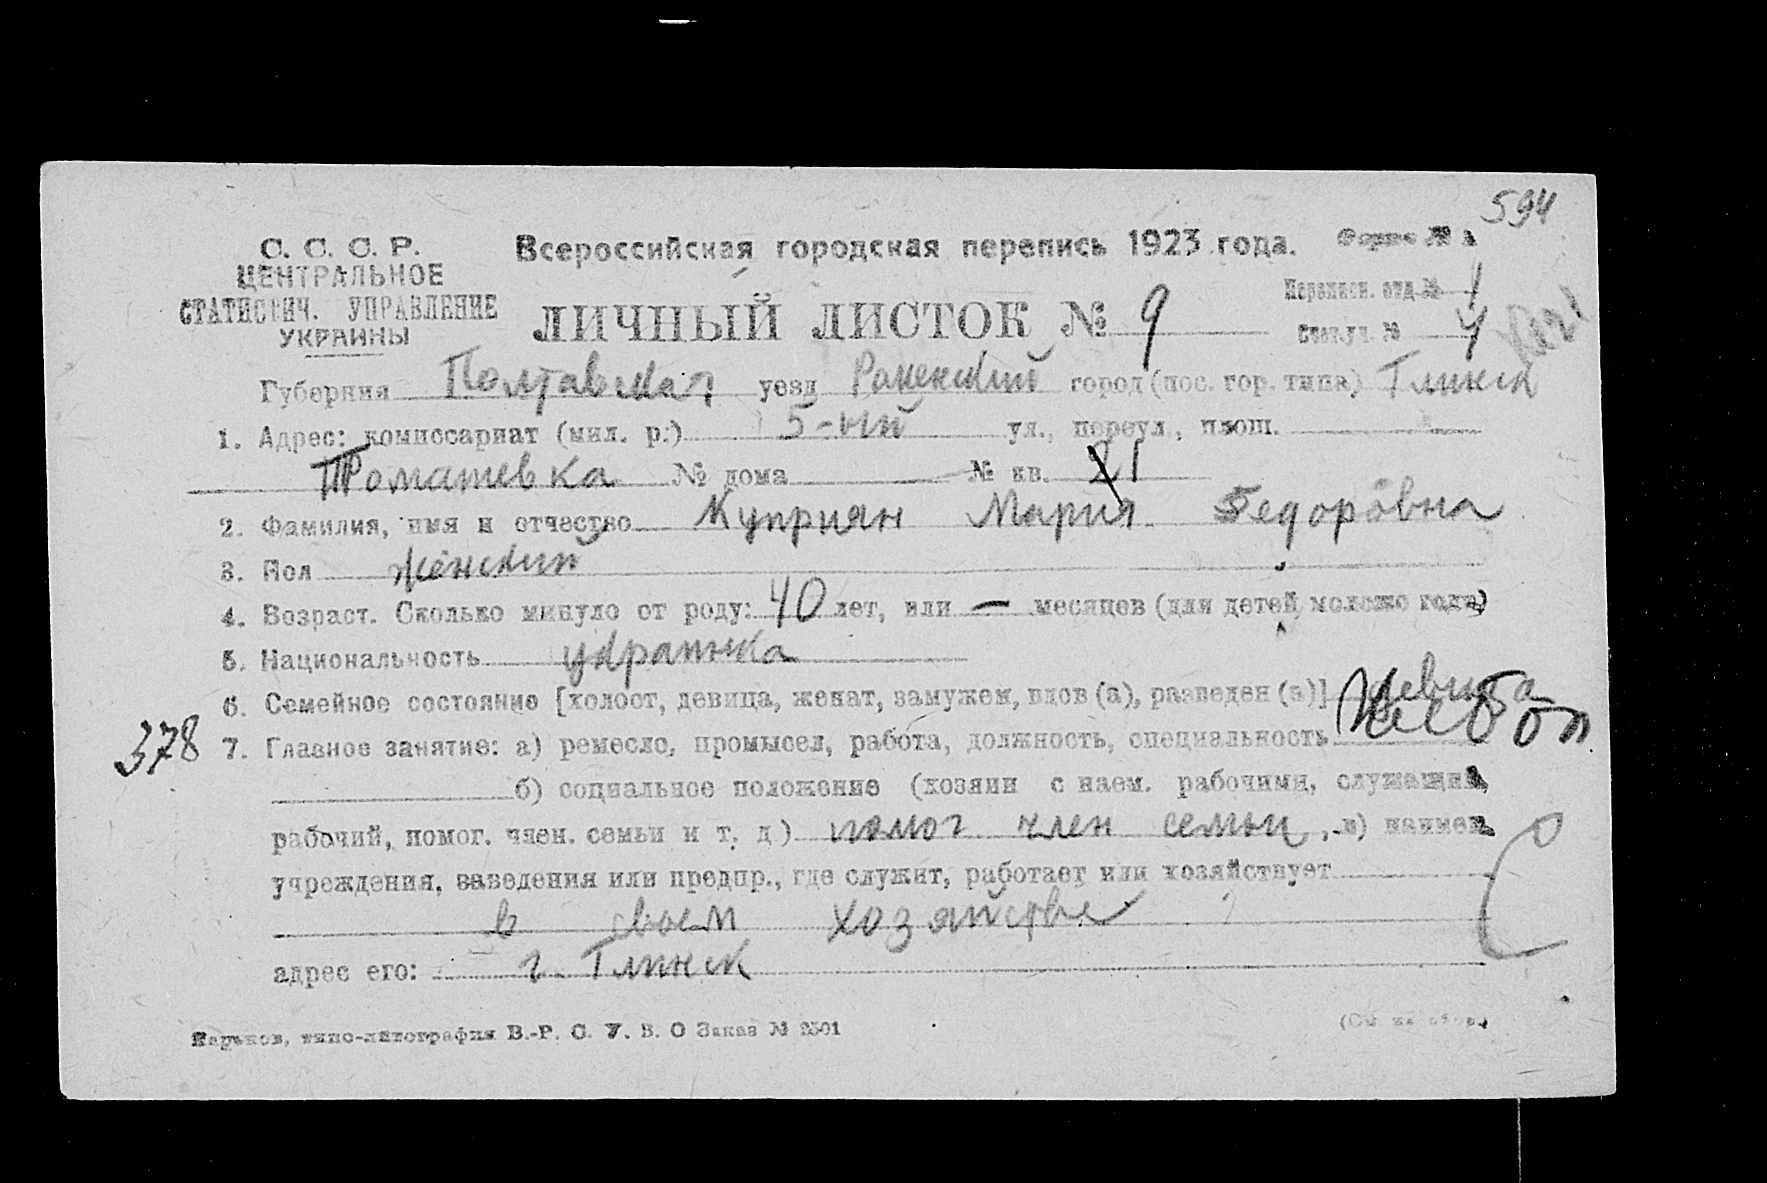 594
С. С. С. Р.
ЦЕНТРАЛЬНОЕ
СТАТИСТИЧ. УПРАВЛЕНИЕ
УКРАИНЫ
Всероссийская городская перепись 1923 года. Форма №
ЛИЧНЫЙ ЛИСТОК № 9
Переписн. отд. №
Счетн. уч. № 4
Губерния Полтавская уезд Роменский город (пос. гор. типа) Глинск
1. Адрес: комиссариат (мил. р.) 5-ый ул., переул., площ.
№ дома № кв. 21
2. Фамилия, имя и отчество Куприян Мария Федоровна
3. Пол женский
4. Возраст. Сколько минуло от роду: 40 лет, или — месяцев (для детей моложе года)
5. Национальность украинка
6. Семейное состояние [холост, девица, женат, замужем, вдов (а), разведен (а)] девица
378 7. Главное занятие: а) ремесло, промысел, работа, должность, специальность
б) социальное положение (хозяин с наем. рабочими, служащий,
рабочий, помог. член. семьи и т. д.) помог член семьи, в) наимен.
учреждения, заведения или предпр., где служит, работает или хозяйствует
в своем хозяйстве
адрес его: г. Глинск
Харьков, типо-литография В.-Р. С. У. В. О Заказ № 2501
(См. на обор.)